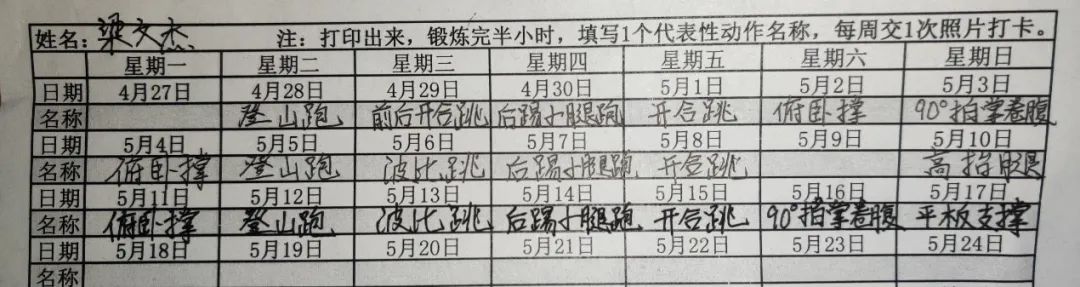 姓名：梁文杰 注：打印出来，锻炼完半小时，填写1个代表性动作名称，每周交1次照片打卡。
星期一 星期二 星期三 星期四 星期五 星期六 星期日
日期 4月27日 4月28日 4月29日 4月30日 5月1日 5月2日 5月3日
名称 登山跑 前后开合跳 后踢小腿跑 开合跳 俯卧撑 90°拍掌卷腹
日期 5月4日 5月5日 5月6日 5月7日 5月8日 5月9日 5月10日
名称 俯卧撑 登山跑 波比跳 后踢小腿跑 开合跳 高抬腿
日期 5月11日 5月12日 5月13日 5月14日 5月15日 5月16日 5月17日
名称 俯卧撑 登山跑 波比跳 后踢小腿跑 开合跳 90°拍掌卷腹 平板支撑
日期 5月18日 5月19日 5月20日 5月21日 5月22日 5月23日 5月24日
名称